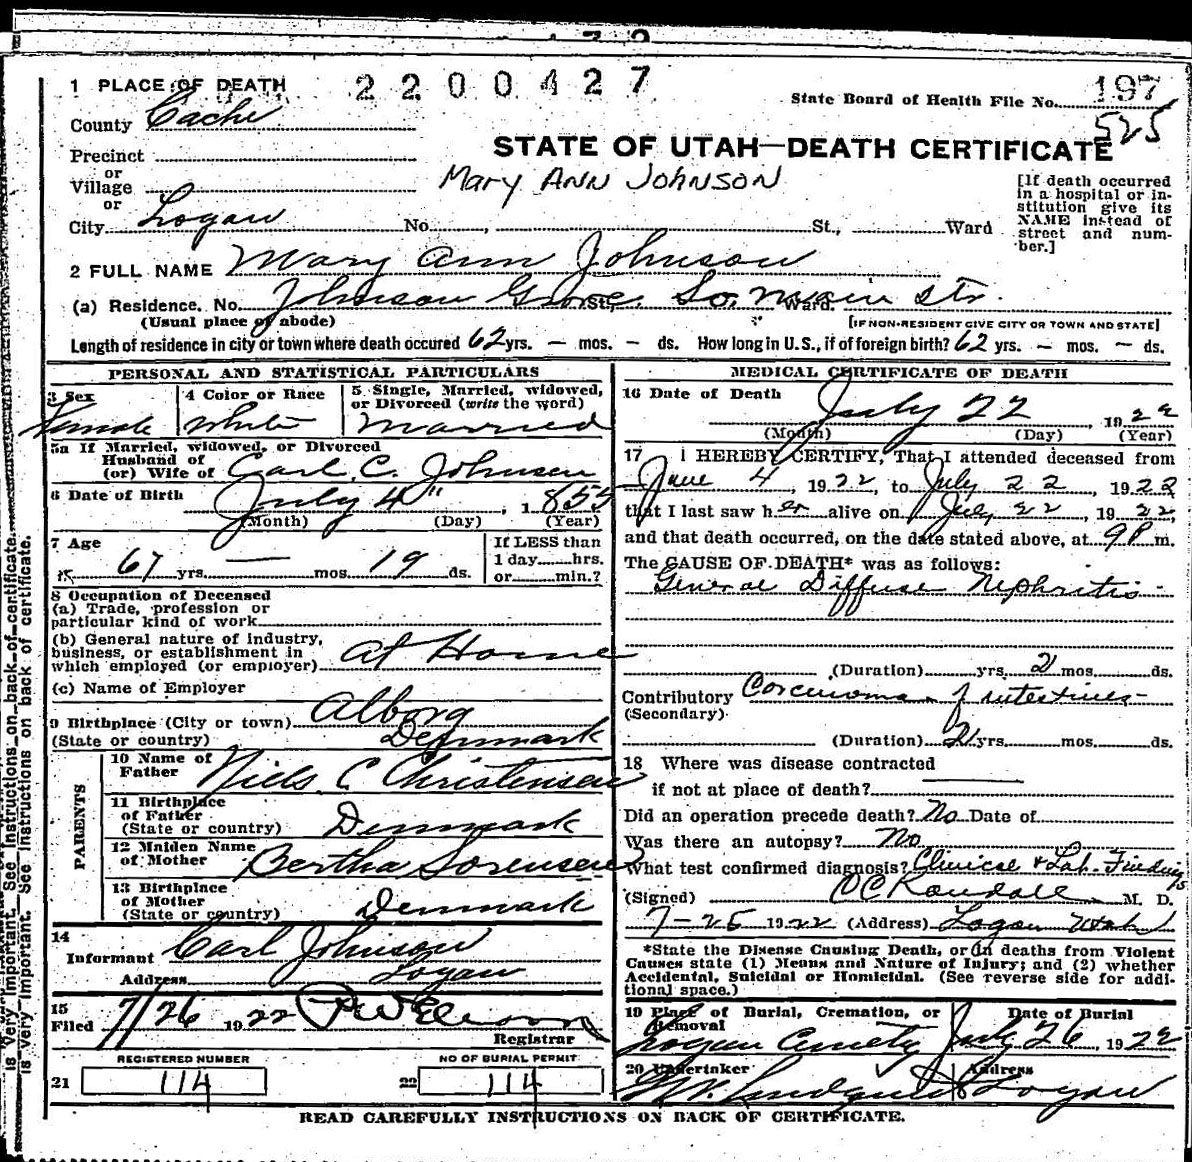 2 2 0 0 4 2 7
1 PLACE OF DEATH
State Board of Health File No. 197
525
County Cache
STATE OF UTAH—DEATH CERTIFICATE
Precinct
or
Village
or
Mary Ann Johnson
[If death occurred
in a hospital or in-
stitution give its
NAME instead of
street and num-
ber.]
City Logan No. , St., Ward
2 FULL NAME Mary Ann Johnson
(a) Residence. No. Johnson Grove St., So. Main Str. Ward.
(Usual place of abode)
[IF NON-RESIDENT GIVE CITY OR TOWN AND STATE]
Length of residence in city or town where death occured 62 yrs. — mos. — ds. How long in U.S., if of foreign birth? 62 yrs. — mos. — ds.
PERSONAL AND STATISTICAL PARTICULARS
3 Sex
Female
4 Color or Race
White
5 Single, Married, widowed,
or Divorced (write the word)
Married
5a If Married, widowed, or Divorced
Husband of
(or) Wife of Carl C. Johnson
6 Date of Birth July 4" , 1855
(Month) (Day) (Year)
7 Age
67 yrs. — mos. 19 ds.
If LESS than
1 day hrs.
or min.?
8 Occupation of Deceased
(a) Trade, profession or
particular kind of work
(b) General nature of industry,
business, or establishment in
which employed (or employer) At Home
(c) Name of Employer
9 Birthplace (City or town) Alborg
(State or country) Denmark
PARENTS
10 Name of
Father Niels C Christensen
11 Birthplace
of Father
(State or country) Denmark
12 Maiden Name
of Mother Bertha Sorensen
13 Birthplace
of Mother
(State or country) Denmark
14
Informant Carl Johnson
Address Logan
15
Filed 7/26 1922
Registrar
REGISTERED NUMBER
21 114
NO OF BURIAL PERMIT
22 114
MEDICAL CERTIFICATE OF DEATH
16 Date of Death July 22 , 1922
(Month) (Day) (Year)
17 I HEREBY CERTIFY, That I attended deceased from
June 4 , 1922, to July 22 , 1922
that I last saw her alive on July 22 , 1922,
and that death occurred, on the date stated above, at 9P m.
The CAUSE OF DEATH* was as follows:
General Diffuse Nephritis
(Duration) yrs. 2 mos. ds.
Contributory Corcinoma of intestines
(Secondary)
(Duration) 2 yrs. mos. ds.
18 Where was disease contracted
if not at place of death?
Did an operation precede death? No Date of
Was there an autopsy? No
What test confirmed diagnosis? Clinical & Lab. Findings
(Signed) O C Randall M. D.
7-25 1922 (Address) Logan Utah
*State the Disease Causing Death, or in deaths from Violent
Causes state (1) Means and Nature of Injury; and (2) whether
Accidental, Suicidal or Homicidal. (See reverse side for addi-
tional space.)
19 Place of Burial, Cremation, or
Removal
Logan Cemetery
Date of Burial
July 26, 1922
20 Undertaker
Address
Logan
READ CAREFULLY INSTRUCTIONS ON BACK OF CERTIFICATE.
is very important. See instructions on back of certificate.
is very important. See instructions on back of certificate.